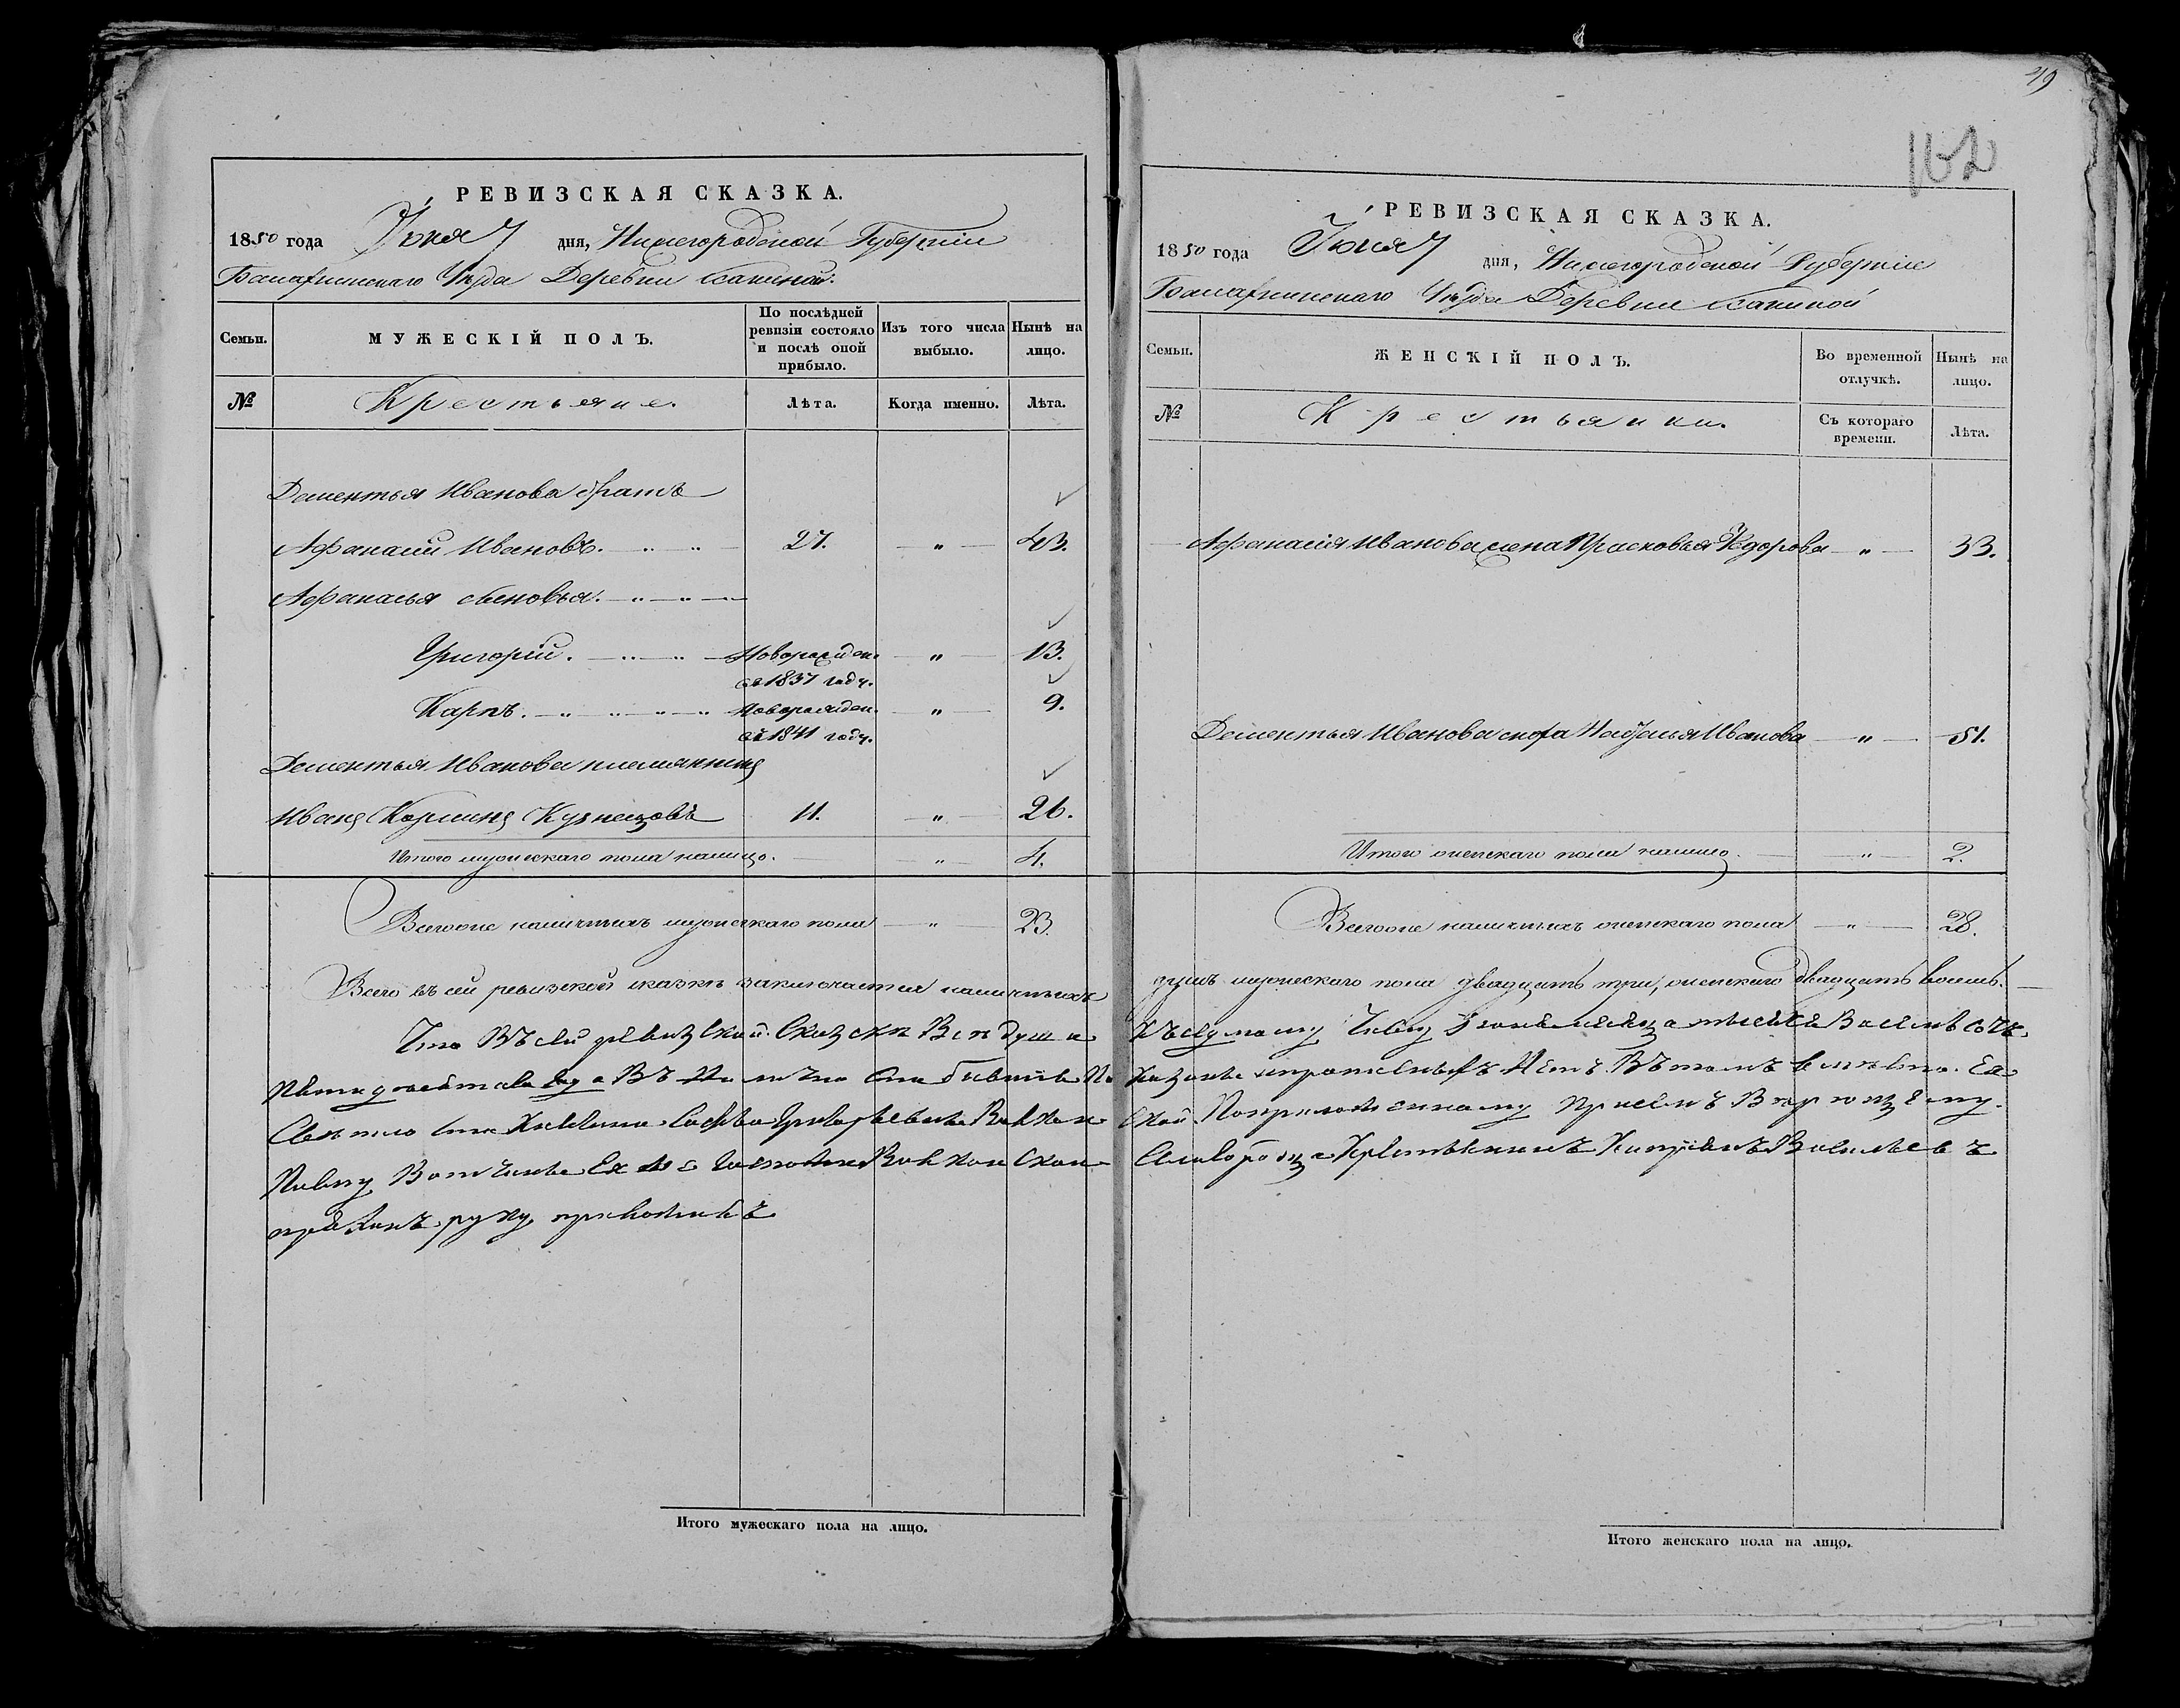 РЕВИЗСКАЯ СКАЗКА.
1850 года Іюня 7 дня, Нижегородской Губерніи
Балахнинскаго Уѣзда Деревни
Семьи. МУЖЕСКІЙ ПОЛЪ. По послѣдней ревизіи состояло и послѣ оной прибыло. Изъ того числа выбыло. Нынѣ на лицо.
№ Крестьяне. Лѣта. Когда именно. Лѣта.
Дементья Иванова братъ
Афанасій Ивановъ. 27. „ 43.
Афанасья сыновья.
Григорій. Новорожден. „ 13.
съ 1837 году.
Карпъ. Новорожден. „ 9.
съ 1841 году.
Дементья Иванова племянникъ
Иванъ Кузнецовъ 11. „ 26.
Итого мужескаго пола налицо. „ 4.
Всего наличныхъ мужескаго пола „ 23.
Всего въ сей ревизской сказкѣ заключается наличныхъ
Что Въ сей ревизской Сказки Всѣ души
Въ они бывшие
Светло Григорьевны Волкон
Вотчине Волконском
руку приложилъ
Итого мужескаго пола на лицо.
49
162
РЕВИЗСКАЯ СКАЗКА.
1850 года Іюня 7 дня, Нижегородской Губерніи
Балахнинскаго Уѣзда Деревни
Семьи. ЖЕНСКІЙ ПОЛЪ. Во временной отлучкѣ. Нынѣ на лицо.
№ Крестьянки. Съ котораго времени. Лѣта.
Афанасія Иванова жена Прасковья Ѳедорова „ 33.
Дементья Иванова сноха Иванова „ 51.
Итого женскаго пола налицо. „ 2.
Всего наличныхъ женскаго пола „ 28.
душъ мужескаго пола двадцать три, женскаго двадцать восемь.
Къ седмому Числу Июня месяца тысяча Восемь сотъ
Нетъ. Въ томъ вместо
ской По Приему
Крестьянинъ Васильевъ
Итого женскаго пола на лицо.